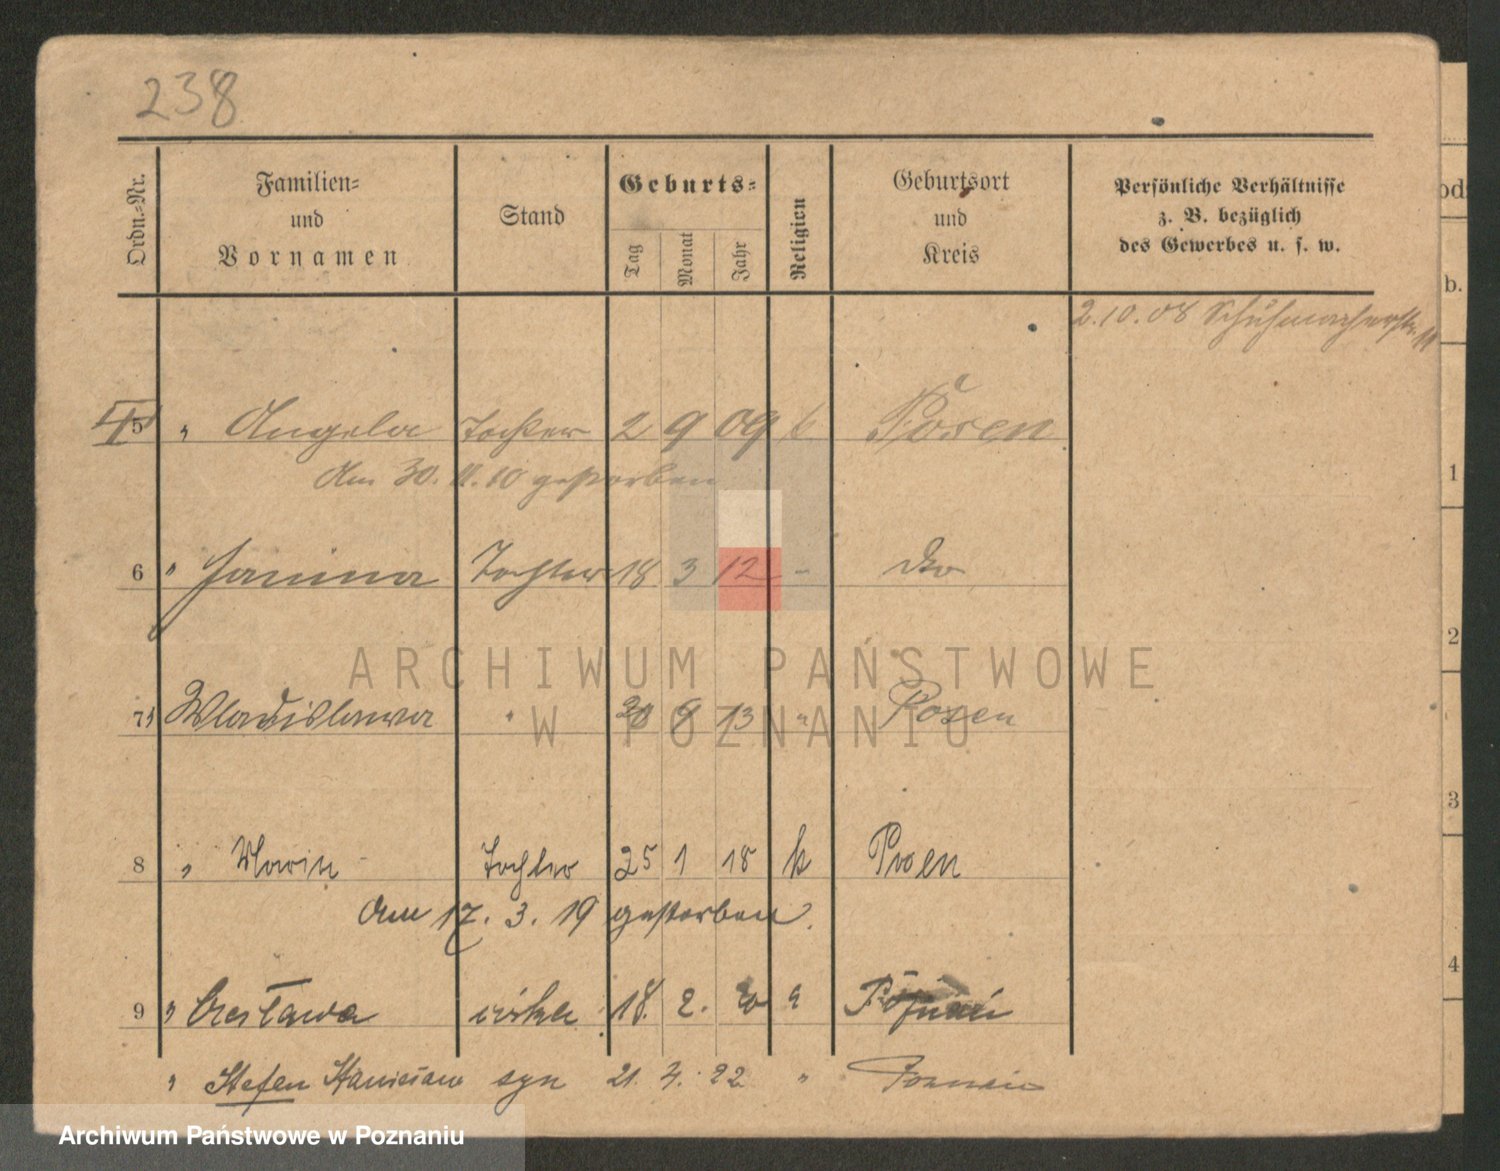 238
Ordn.-Nr.
Familien-
und
Vornamen
Stand
Geburts-
Tag
Monat
Jahr
Religion
Geburtsort
und
Kreis
Persönliche Verhältnisse
z. B. bezüglich
des Gewerbes u. s. w.
2.10.08 Schuhmacherstr. 11
5 " Angela Tochter 2 9 09 k Posen
Am 30.11.10 gestorben
6 " Janina Tochter 18 3 12 - dto
7 " Wladislawa " 9 13 " Posen
8 " Maria Tochter 25 1 18 k Posen
Am 17.3.19 gestorben.
9 " Czesława córka 18. 2. 20 " Poznań
" Stefan Stanisław syn 21. 7. 22 " Poznań
b.
1
2
3
4
ARCHIWUM PAŃSTWOWE
W POZNANIU
Archiwum Państwowe w Poznaniu